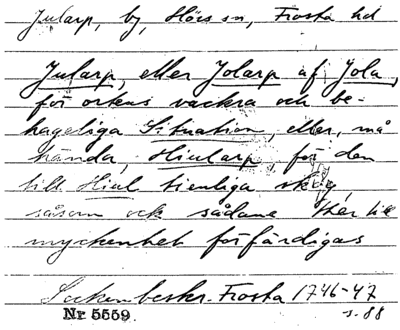 Jularp, by, Hörs sn, Frosta hd
Jularp, eller Jolarp af Jola,
för ortens vackra och be-
hageliga Situation, eller, må
hända, Hiularp, för den
till Hiul tienliga skog,
såsom ock sådane här till
myckenhet förfärdigas
Sockenbeskr. Frosta 1746-47
Nr 5559. s. 88